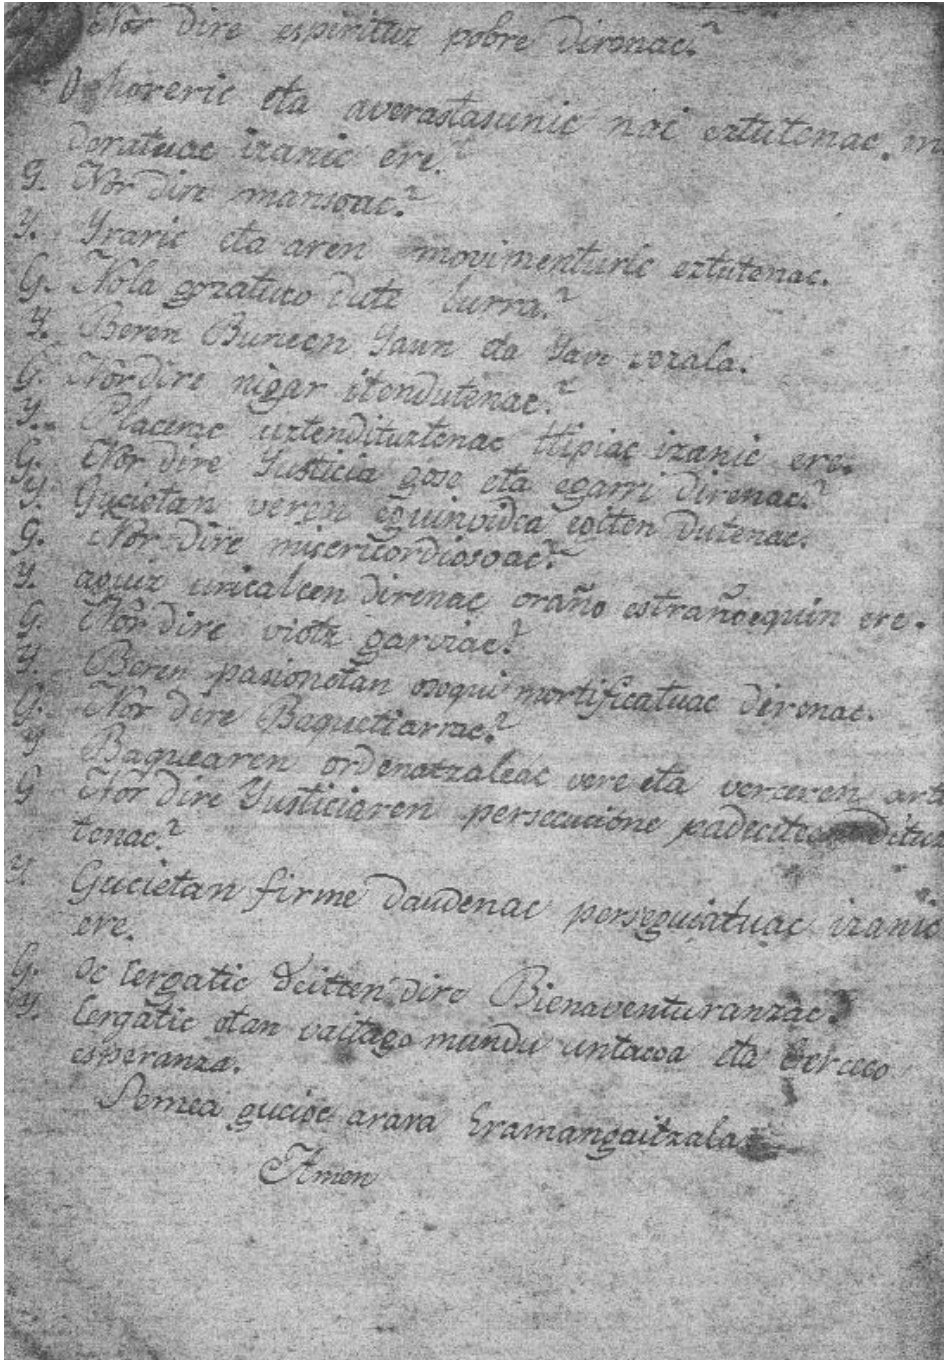 Nôr dire espirituz pobre dironac?
Ohoreric eta averastasunic nai eztutenac. m
deratuac izanic ere.
G. Nôr dire mansoac?
Y. Yraric eta aren movimenturic eztutenac.
G. Nola gozatuco dute lurra?
Y. Beren Buruen Jaun eta Jave vezala.
G. Nôr dire nigar itendutenac?
Y. Placerac uztendituztenac ttipiac izanic ere.
G. Nôr dire Justicia gose eta egarri direnac?
Y. Gucietan veren eguinvidea egiten dutenac.
G. Nôr dire misericordiosoac?
Y. aguiz urricalcen direnac oraño estrañoequin ere.
G. Nôr dire viotz garviac?
Y. Beren pasionetan osoqui mortificatuac direnac.
G. Nôr dire Baquetiarrac?
Y Baquearen ordenatzaleac vere eta verceren art
G Nôr dire Justiciaren persecucione padecitcen dituz
tenac?
Y Gucietan firme daudenac perseguiatuac izanic
ere.
G. oc cergatic deitten dire Bienaventuranzac?
Y. Cergatic otan vaitago mundu untacoa eta berceco
esperanza.
Jemea gucioc arara Eramangaitzala
Amen